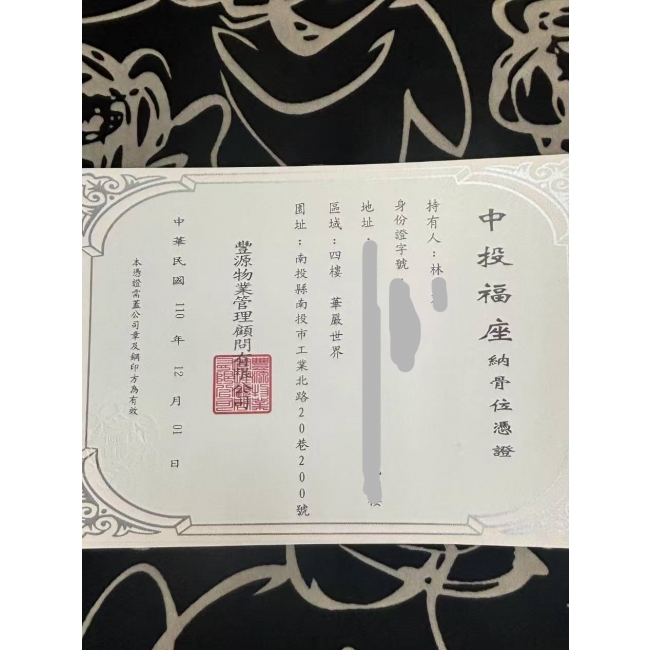 中投福座 納骨位憑證
持有人：林
身份證字號：
地址：
區域：四樓 華嚴世界
園址：南投縣南投市工業北路20巷200號
豐源物業管理顧問有限公司
中華民國 110 年 12 月 01 日
本憑證需蓋公司章及鋼印方為有效